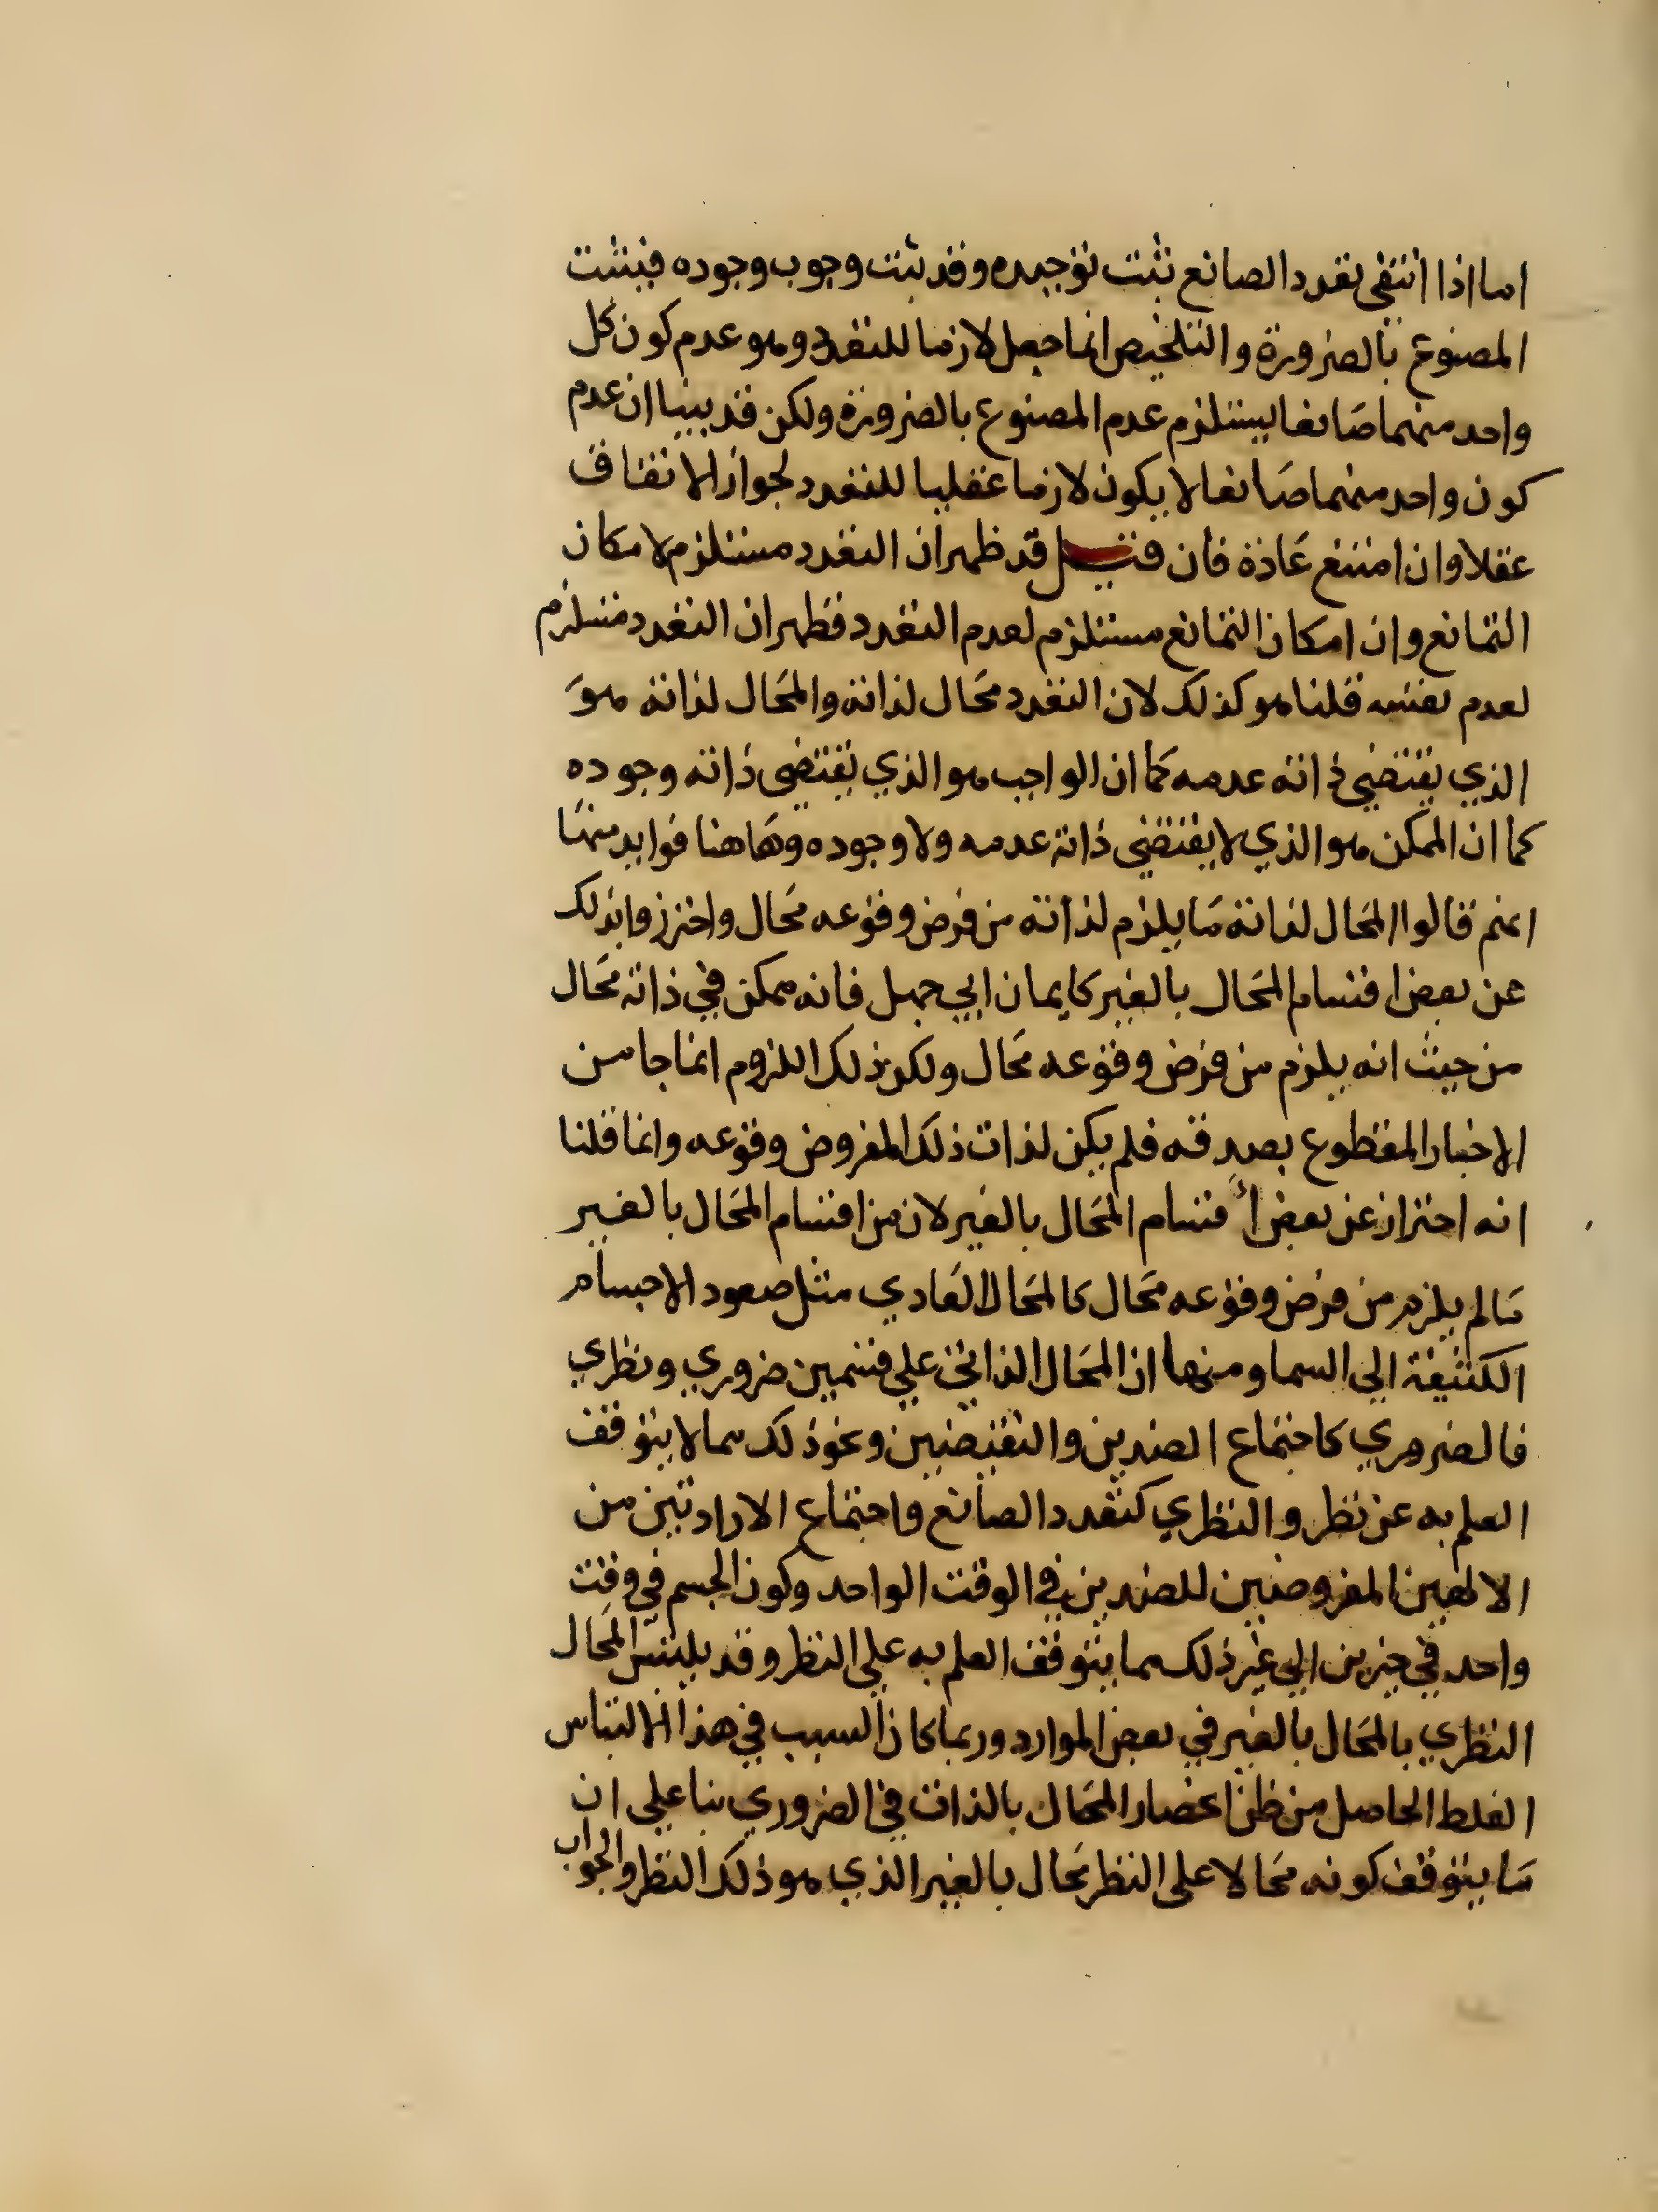 اما اذا انتفى تعدد الصانع ثبت توحيده وقد ثبت وجوب وجوده فيثبت
المصنوع بالضرورة والتلخيص انما جعل لازما للتعدد وهو عدم كون كل
واحد منهما صانعا ليستلزم عدم المصنوع بالضرورة ولكن قد بينا ان عدم
كون واحد منهما صانعا لا يكون لازما عقليا للتعدد لجواز الاتفاق
عقلا وان امتنع عادة فان قيل قد ظهر ان التعدد مستلزم لامكان
التمانع وان امكان التمانع مستلزم لعدم التعدد فظهر ان التعدد مستلزم
لعدم نفسه قلنا هو كذلك لان التعدد محال لذاته والمحال لذاته هو
الذي يقتضي ذاته عدمه كما ان الواجب هو الذي يقتضي ذاته وجوده
كما ان الممكن هو الذي لا يقتضي ذاته عدمه ولا وجوده وهاهنا فوايد منها
انهم قالوا المحال لذاته ما يلزم لذاته من فرض وقوعه محال واحترزوا بذلك
عن بعض اقسام المحال بالغير كايمان ابي جهل فانه ممكن في ذاته محال
من حيث انه يلزم من فرض وقوعه محال ولكن ذلك اللزوم انما جا من
الاخبار المقطوع بصدقه فلم يكن لذات ذلك المفروض وقوعه وانما قلنا
انه احتراز عن بعض أقسام المحال بالغير لان من اقسام المحال بالغير
ما لم يلزم من فرض وقوعه محال كالمحال العادي مثل صعود الاجسام
الكثيفة الي السما ومنها ان المحال الذاتي علي قسمين ضروري ونظري
فالضروري كاجتماع الضدين والنقيضين ونحو ذلك مما لا يتوقف
العلم به عن نظر والنظري كتعدد الصانع واجتماع الارادتين من
الالهين المفروضين للضدين في الوقت الواحد وكون الجسم في وقت
واحد في حيزين الي غير ذلك مما يتوقف العلم به علي النظر وقد يلتبس المحال
النظري بالمحال بالغير في بعض الموارد وربما كان السبب في هذا الالتباس
الغلط الحاصل من ظن انحصار المحال بالذات في الضروري بنا علي ان
ما يتوقف كونه محالا علي النظر محال بالغير الذي هو ذلك النظر والجواب